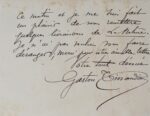 Ce matin et je me suis fait
un plaisir de vous remettre
quelques livraisons de La Nature
Je n'ai pas voulu vous faire
déranger,
Votre tout dévoué
Gaston Tissandier